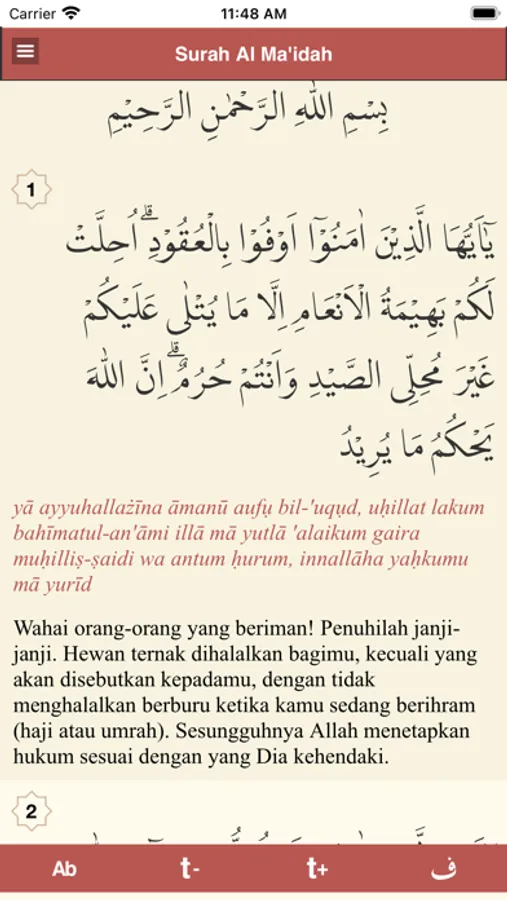 Carrier
11:48 AM
Surah Al Ma'idah
بِسْمِ اللّٰهِ الرَّحْمٰنِ الرَّحِيْمِ
1
يٰٓاَيُّهَا الَّذِيْنَ اٰمَنُوْٓا اَوْفُوْا بِالْعُقُوْدِۗ اُحِلَّتْ
لَكُمْ بَهِيْمَةُ الْاَنْعَامِ اِلَّا مَا يُتْلٰى عَلَيْكُمْ
غَيْرَ مُحِلِّى الصَّيْدِ وَاَنْتُمْ حُرُمٌۗ اِنَّ اللّٰهَ
يَحْكُمُ مَا يُرِيْدُ
yā ayyuhallażīna āmanū aufụ bil-'uqụd, uḥillat lakum
bahīmatul-an'āmi illā mā yutlā 'alaikum gaira
muḥilliṣ-ṣaidi wa antum ḥurum, innallāha yaḥkumu
mā yurīd
Wahai orang-orang yang beriman! Penuhilah janji-
janji. Hewan ternak dihalalkan bagimu, kecuali yang
akan disebutkan kepadamu, dengan tidak
menghalalkan berburu ketika kamu sedang berihram
(haji atau umrah). Sesungguhnya Allah menetapkan
hukum sesuai dengan yang Dia kehendaki.
2
Ab t- t+ ف